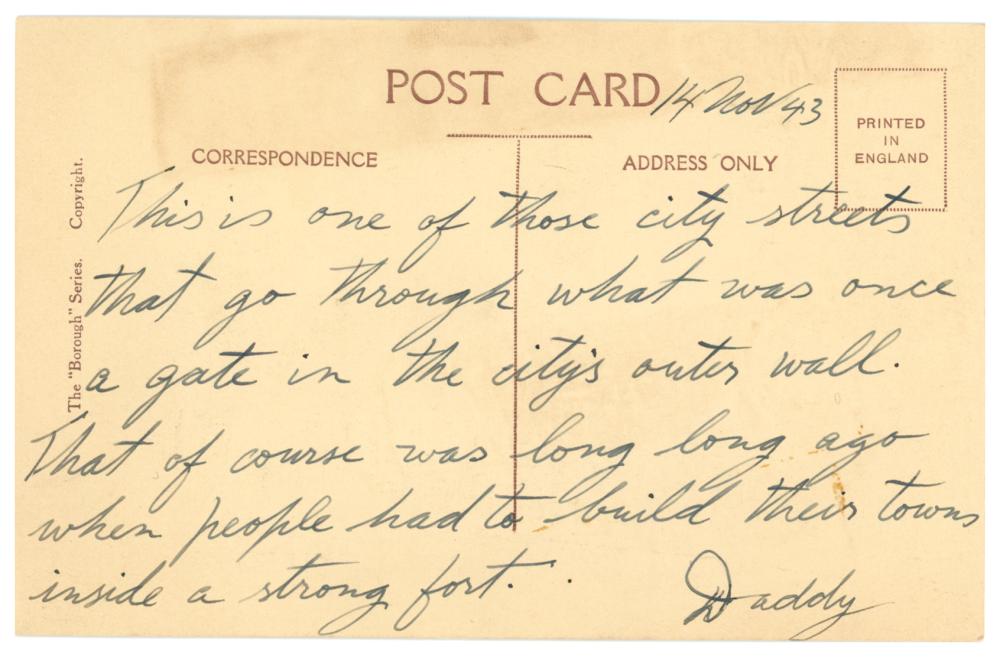 POST CARD
14 Nov 43
PRINTED
IN
ENGLAND
CORRESPONDENCE
ADDRESS ONLY
The "Borough" Series. Copyright.
This is one of those city streets
that go through what was once
a gate in the city's outer wall.
That of course was long long ago
when people had to build their towns
inside a strong fort.
Daddy